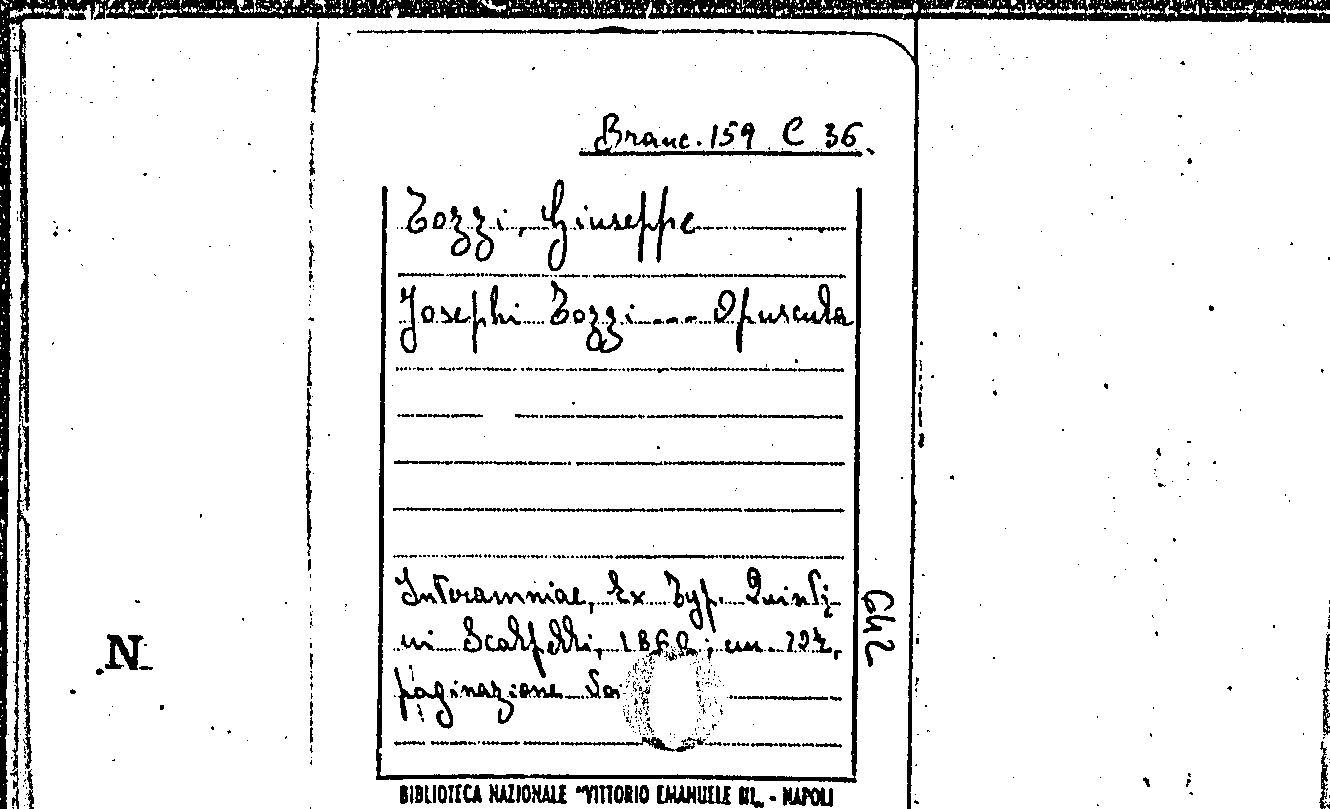 Branc. 159 C 36.
Tozzi, Giuseppe
Josephi Tozzi --- Opuscula
Interamniae, Ex Typ. Quinti-
ni Scalpelli, 1862; cm. 22½,
paginazione
642
N
BIBLIOTECA NAZIONALE "VITTORIO EMANUELE III„ - NAPOLI